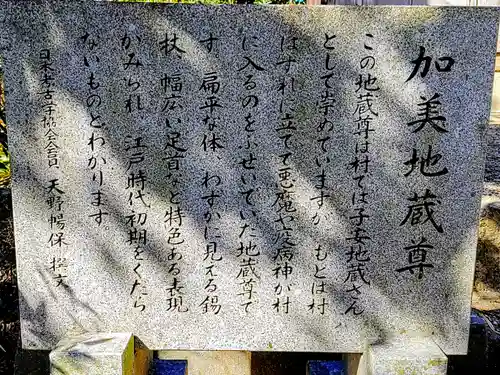 加美地蔵尊
この地蔵尊は村では子安地蔵さん
として崇めていますが、もとは村
はずれに立てて悪魔や疫病神が村
に入るのをふせいでいた地蔵尊で
す 扁平な体、わずかに見える錫
杖、幅広い足首など特色ある表現
がみられ 江戸時代初期をくだら
ないものとわかります
日本考古学協会会員 天野暢保 撰文